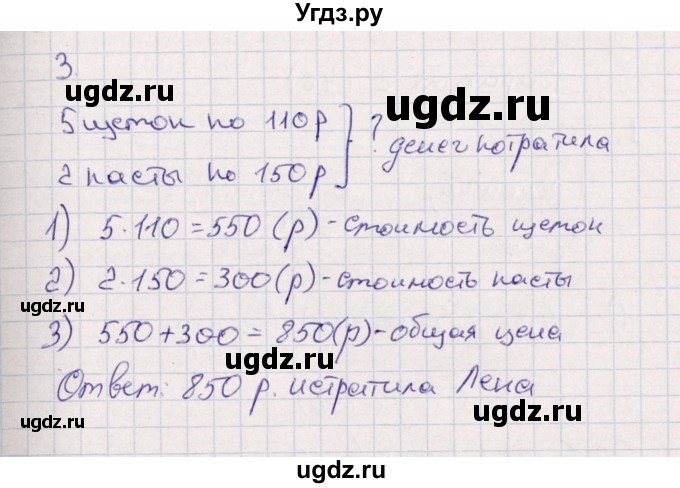 Угдз.ру
3
ugdz.ru
ugdz.ru
5 щеток по 110 р
? денег потратила
2 пасты по 150 р
1) 5·110=550 (р) - стоимость щеток
2) 2·150=300 (р) - стоимость пасты
ugdz.ru
3) 550+300=850(р) - общая цена
ugdz.ru
ugdz.ru
Ответ: 850 р. истратила Лена
ugdz.ru